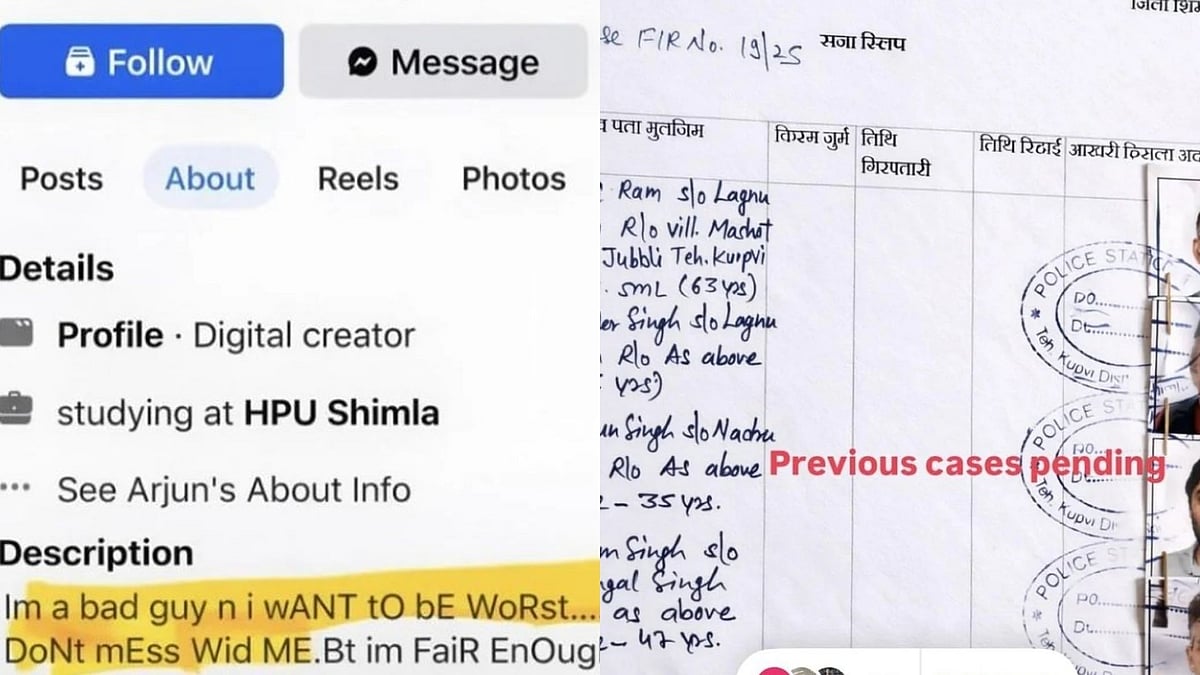 Follow
Message
Posts
About
Reels
Photos
Details
Profile · Digital creator
studying at HPU Shimla
See Arjun's About Info
Description
Im a bad guy n i wANT tO bE WoRst...
DoNt mEss Wid ME.Bt im FaiR EnOug
FIR No. 19/25
सजा स्लिप
पता मुलजिम
किस्म जुर्म
तिथि
गिरफ्तारी
तिथि रिहाई
Ram s/o Lagnu
R/o vill. Mashot
Jubbli Teh. Kupvi
SML (63 yrs)
Singh s/o Lagnu
R/o As above
yrs)
Singh s/o Nachu
R/o As above
- 35 yrs.
Singh s/o
Singh
as above
- 47 yrs.
Previous cases pending
POLICE STATION
DO
Dt
Teh. Kupvi Dist
POLICE
PO
Dt
Teh. Kupvi Di
POLICE ST
PO
Dt